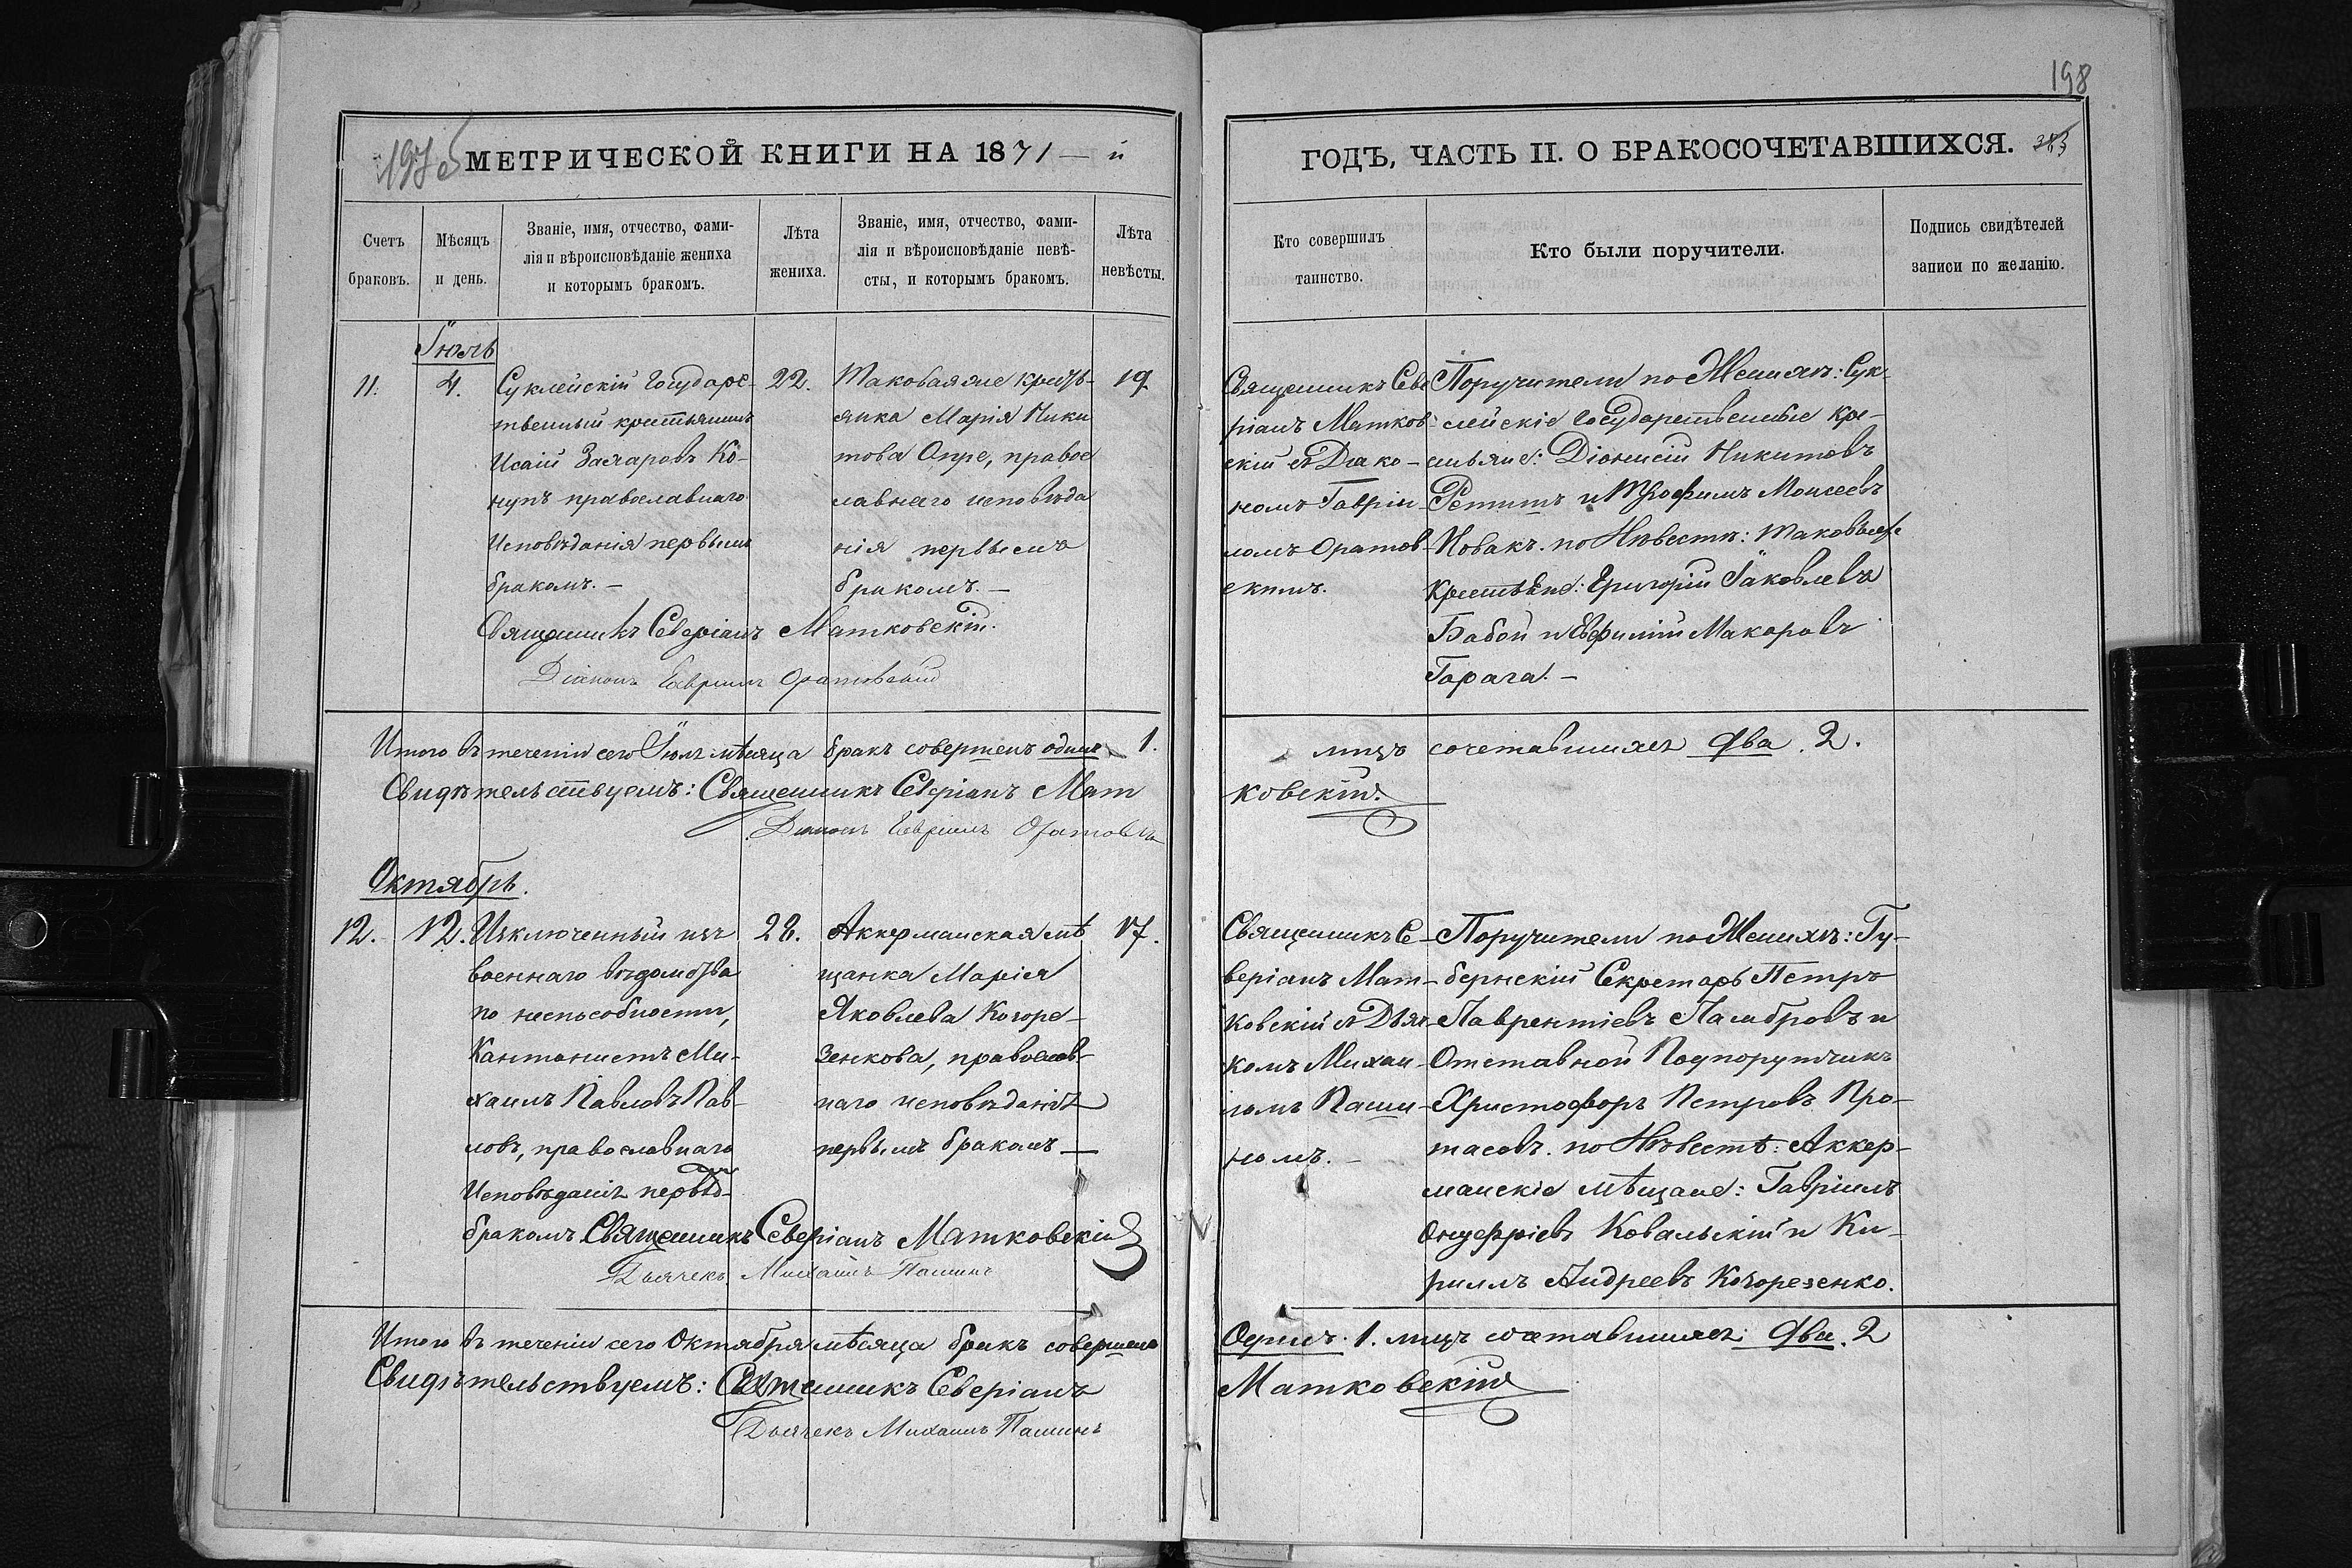 198
197об
МЕТРИЧЕСКОЙ КНИГИ НА 1871 — й
ГОДЪ, ЧАСТЬ II. О БРАКОСОЧЕТАВШИХСЯ.
Счетъ браковъ.
Мѣсяцъ и день.
Званіе, имя, отчество, фами-
лія и вѣроисповѣданіе жениха
и которымъ бракомъ.
Лѣта жениха.
Званіе, имя, отчество, фами-
лія и вѣроисповѣданіе невѣ-
сты, и которымъ бракомъ.
Лѣта невѣсты.
Кто совершилъ
таинство.
Кто были поручители.
Подпись свидѣтелей
записи по желанію.
Іюль
11.
4.
Суклейскій Государс-
твенный крестьянинъ
Исаій Захаровъ Ко-
нупъ православнаго
Исповѣданія первымъ
бракомъ. —
22.
Таковая же крестья-
янка Марія Ники
това Опре, правос
лавнаго исповѣда
нія первымъ
бракомъ. —
19
Священникъ Северіанъ Матковскій.
Діаконъ Гавріилъ Оратовскій
Священникъ Севе
ріанъ Матков
скій съ Діако-
номъ Гавріи-
ломъ Оратов-
скимъ.
Поручители по Женихѣ: Сук-
лейскіе Государственные кре-
стьяне: Діонисій Никитовъ
и Трофимъ Моисеевъ
Новакъ. по Невестѣ: таковые же
Крестьяне: Григорій Іаковлевъ
Бабой и Евфимій Макаровъ
Гарага. —
Итого въ теченіи сего Іюль мѣсяца бракъ совершенъ одинъ 1.
лицъ сочетавшихся два. 2.
Свидѣтельствуемъ: Священникъ Северіанъ Мат
ковскій.
Діаконъ Гавріилъ Оратовскі
Октябрь.
12.
12.
Исключенный изъ
военнаго вѣдомства
по неспособности,
Кантонистъ Ми-
хаилъ Павловъ Пав-
ловъ, православнаго
Исповѣданія первымъ
бракомъ
28.
Аккерманская мѣ
щанка Марія
Яковлева Когоре-
зенкова, православ-
наго исповѣданія
первымъ бракомъ —
17.
Священникъ Северіанъ Матковскій
Дьячекъ Михаилъ Пашинъ
Священникъ Се-
веріанъ Мат-
ковскій съ Дьяч-
комъ Михаи-
ломъ Паши-
номъ. —
Поручители по Женихѣ: Гу-
бернскій Секретарь Петръ
Лаврентіевъ Ламбровъ и
Отставной Подпорутчикъ
Христофоръ Петровъ Про-
тасовъ. по Невестѣ: Аккер-
манскіе мѣщане: Гавріилъ
Онуфріевъ Ковальскій и Ки-
риллъ Андреевъ Когорезенко.
Итого въ теченіи сего Октября мѣсяца бракъ совершенъ
Одинъ. 1. лицъ сочетавшихся: два. 2
Свидѣтельствуемъ: Священникъ Северіанъ
Матковскій
Дьячекъ Михаилъ Пашинъ